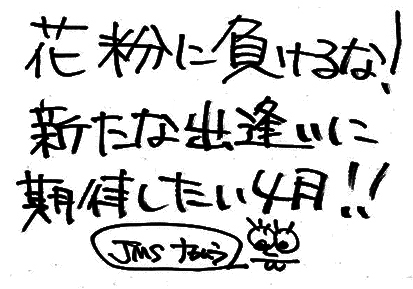 花粉に負けるな!
新たな出逢いに
期待したい4月!!
JMS